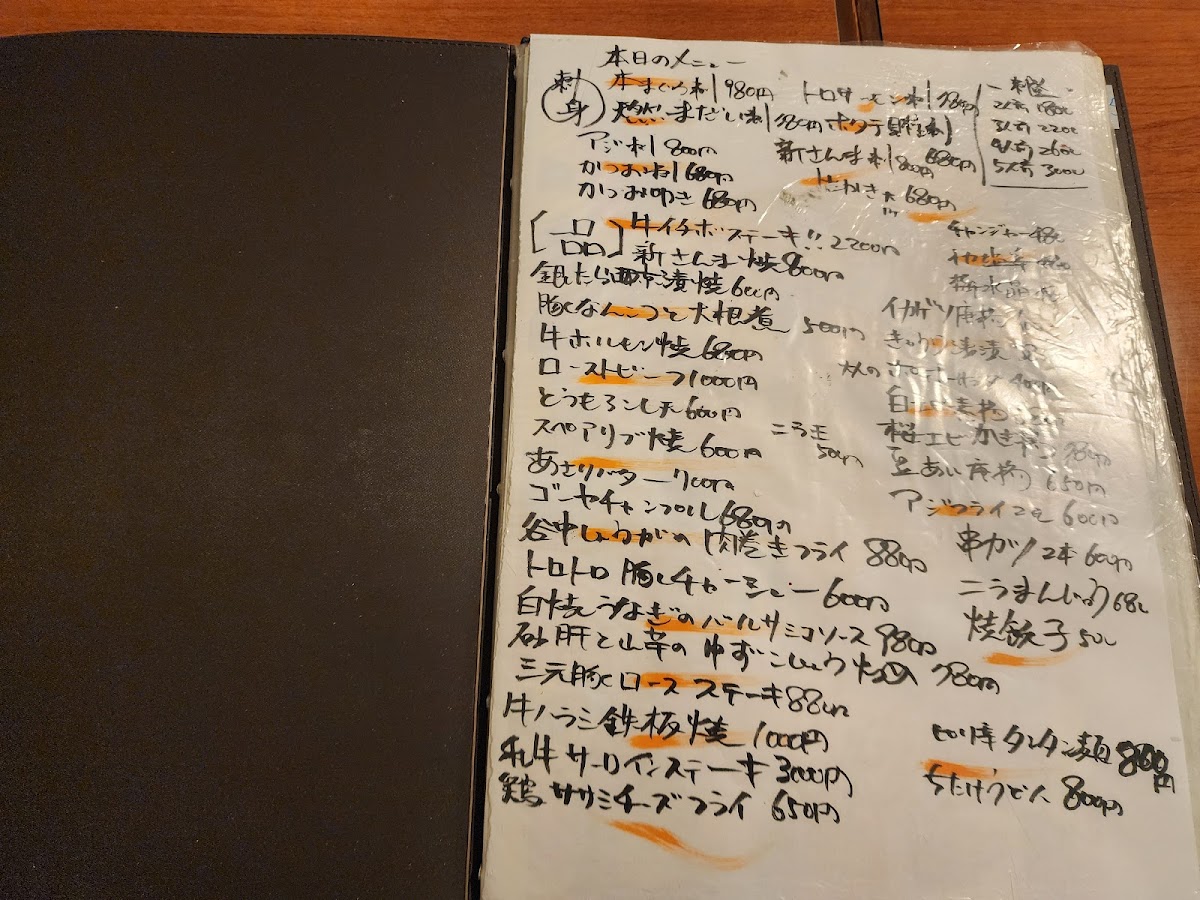 本日のメニュー
刺身
本まぐろ刺 980円
トロサーモン刺 780円
まだい刺 780円 ホタテ貝柱刺
680円
アジ刺 800円
新さんま刺 800円
かつお刺 680円
かつお叩き 680円
680円
2人前 1800
3人前 2200
4人前 2600
5人前 3000
一品
牛イチボステーキ!! 2200円
新さんま焼 800円
銀だら西京漬焼 600円
豚なんこつと大根煮 500円
牛ホルモン焼 680円
ローストビーフ 1000円
とうもろこし天 600円
スペアリブ焼 600円
ニラ玉 500円
あさりバター 700円
ゴーヤチャンプルー 680円
谷中しょうがの肉巻きフライ 880円
トロトロ豚チャーシュー 600円
白焼うなぎのバルサミコソース 980円
砂肝と山芋のゆずこしょう炒め 780円
三元豚ロースステーキ 880円
牛ハラミ鉄板焼 1000円
和牛サーロインステーキ 3000円
鶏ササミチーズフライ 650円
チャンジャー 480
梅水晶
イカゲソ唐揚
きゅうり浅漬
桜エビかきあげ 780円
豆あじ唐揚 650円
アジフライ 2ケ 600円
串カツ 2本 600円
ニラまんじゅう 680
焼餃子 500
ピリ辛タンタン麺 800円
ちたけうどん 800円